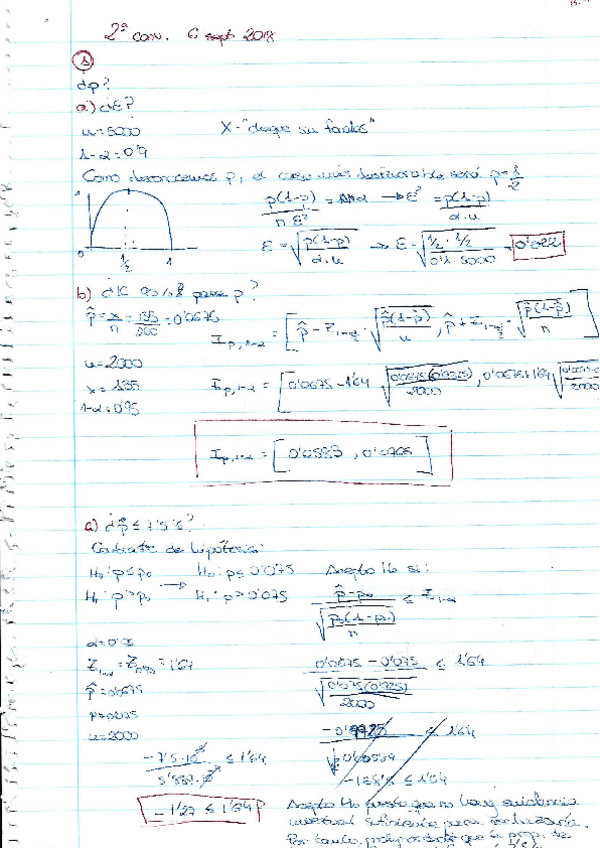 2ª conv. 6 sept 2018
①
¿p?
a) ¿E?
n=5000
X-"
1-α=0'9
Como desconocemos p, el caso más desfavorable será p=1/2
p(1-p)/(n·E²) = α → E² = p(1-p)/(α·n)
1
0 1/2 1
E = √(p(1-p)/(α·n)) → E = √((1/2·1/2)/(0'1·5000)) = 0'022
b) ¿IC 95% para p?
p̂ = x/n = 135/ = 0'0675
I_{p,1-α} = [p̂ - Z_{1-α/2}·√(p̂(1-p̂)/n), p̂ + Z_{1-α/2}·√(p̂(1-p̂)/n)]
n=2000
x=135
I_{p,1-α} = [0'0675-1'64·√(0'0675(0'9325)/2000), 0'0675+1'64√(/2000)
1-α=0'95
I_{p,1-α} = [0'0583, 0'0766]
c) ¿p ≤ 7'5%?
Contraste de hipótesis:
H₀: p≤p₀ → H₀: p≤0'075 Acepto H₀ si:
H₁: p>p₀ H₁: p>0'075 (p̂-p₀)/√(p₀(1-p₀)/n) ≤ Z_{1-α}
α=0'05
Z_{1-α}=Z_{0'95}=1'64
(0'0675-0'075)/√(0'075(0'925)/2000) ≤ 1'64
p̂=0'0675
p=0'075
n=2000
≤ 1'64
≤ 1'64
≤ 1'64
-1'27 ≤ 1'64
Acepto H₀ puesto que no hay evidencia
muestral suficiente para rechazarla.
Por tanto, que la prop. de